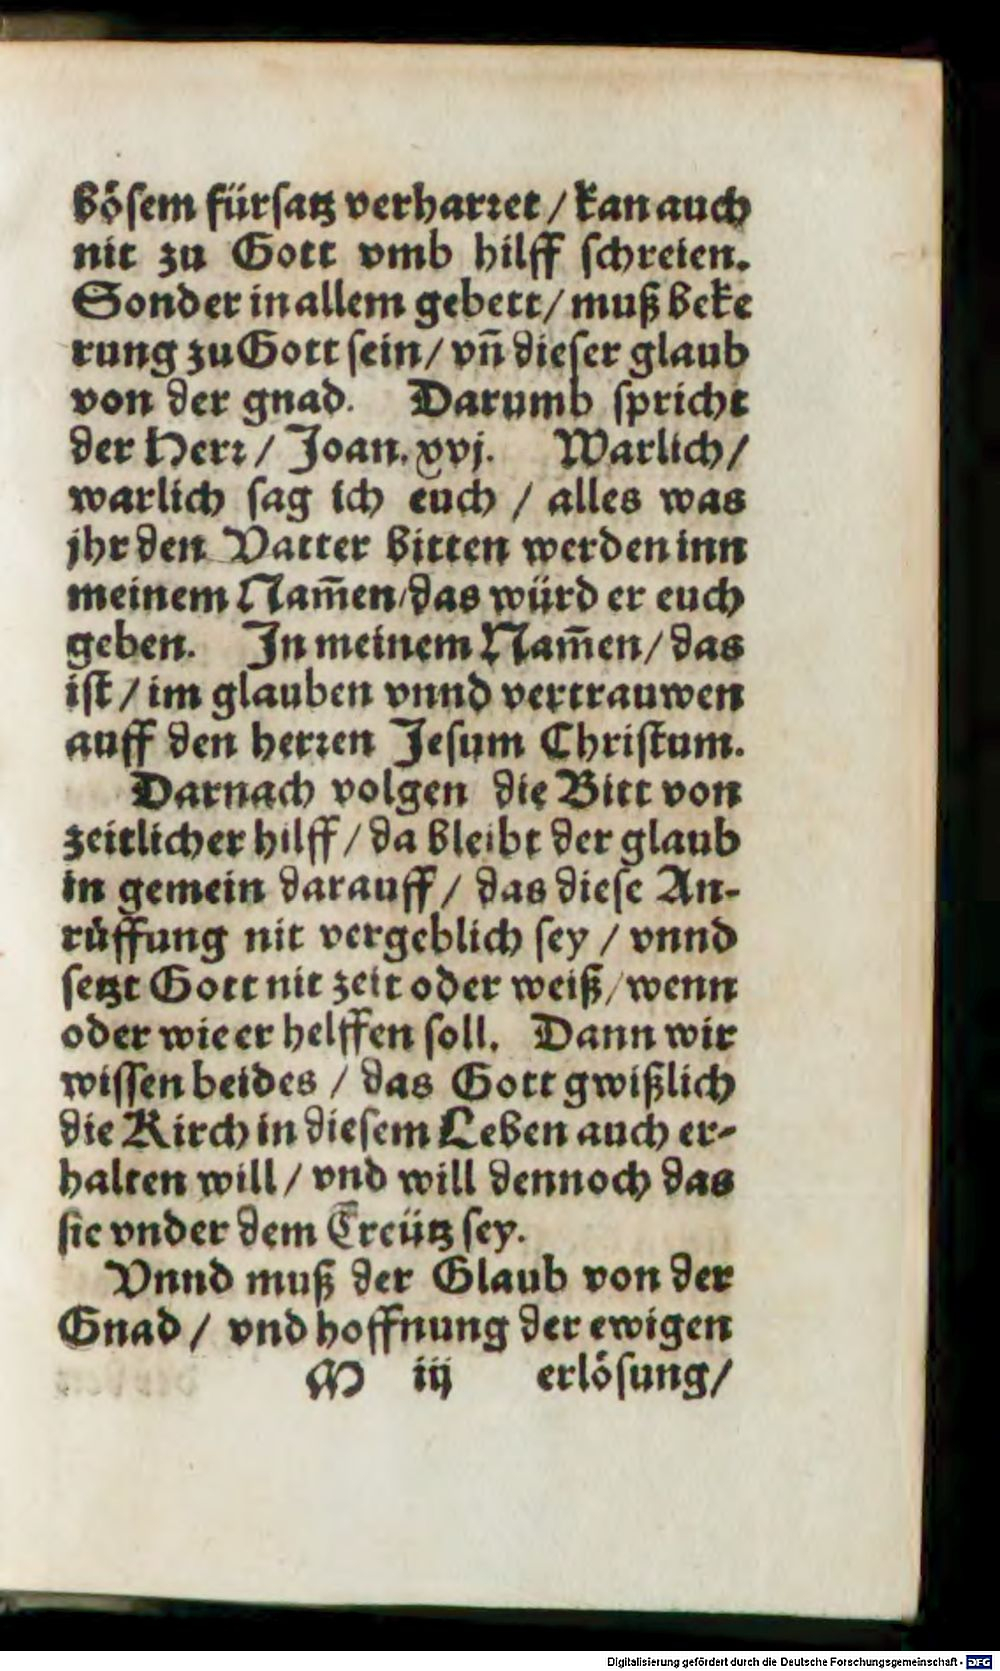 bösem fürsatz verharret / kan auch
nit zu Gott vmb hilff schreien.
Sonder in allem gebett / muß beke
rung zu Gott sein / vn̄ dieser glaub
von der gnad. Darumb spricht
der Herr / Joan. xvj. Warlich /
warlich sag ich euch / alles was
jhr den Vatter bitten werden inn
meinem Nam̄en / das würd er euch
geben. In meinem Nam̄en / das
ist / im glauben vnnd vertrauwen
auff den herren Jesum Christum.
Darnach volgen die Bitt von
zeitlicher hilff / da bleibt der glaub
in gemein darauff / das diese An-
rüffung nit vergeblich sey / vnnd
setzt Gott nit zeit oder weiß / wenn
oder wie er helffen soll. Dann wir
wissen beides / das Gott gwißlich
die Kirch in diesem Leben auch er-
halten will / vnd will dennoch das
sie vnder dem Creütz sey.
Vnnd muß der Glaub von der
Gnad / vnd hoffnung der ewigen
M iij erlösung /
Digitalisierung gefördert durch die Deutsche Forschungsgemeinschaft - DFG